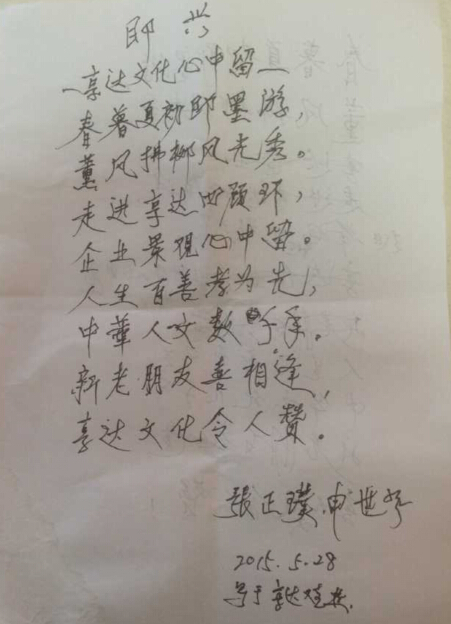 即兴
—享达文化心中留—
春暮夏初即墨游，
薰风拂柳风光秀。
走进享达四顾环，
企业景观心中留。
人生百善孝为先，
中华人文数千年。
新老朋友喜相逢，
享达文化令人赞。
张正璞 申世
2015.5.28
写于享达